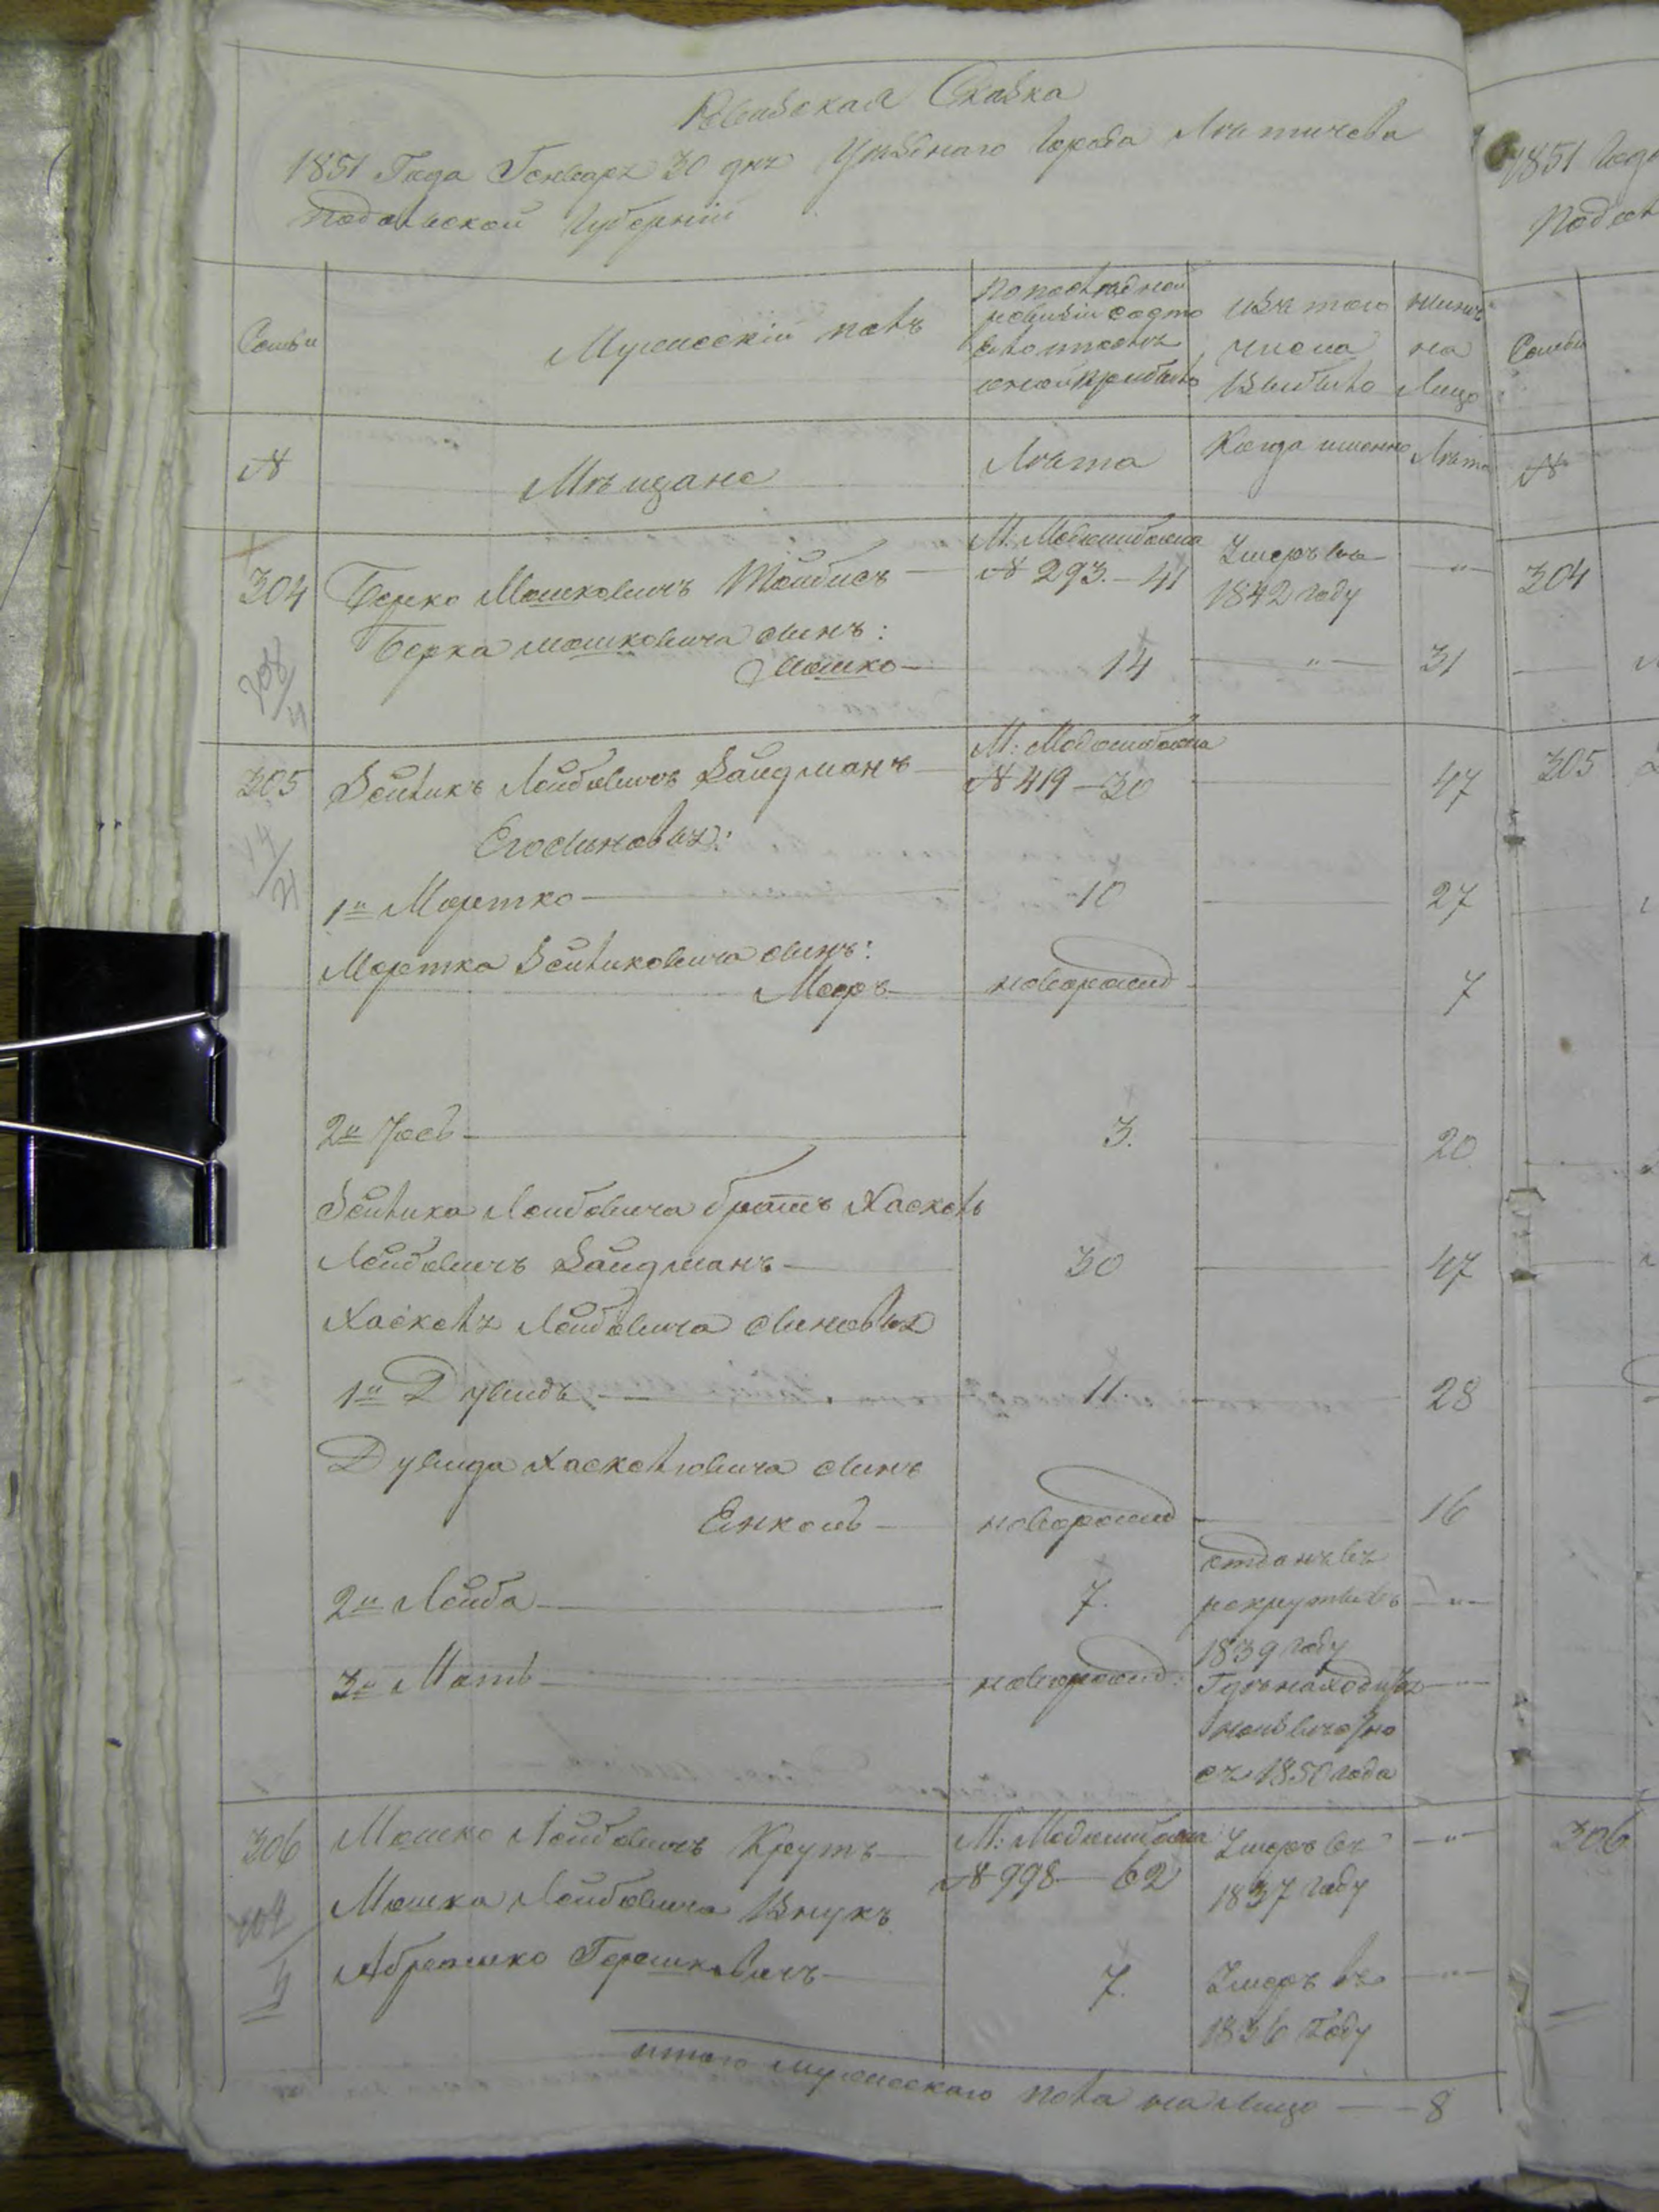 Ревизская Сказка
1851 Года Генваря 30 дня Уѣзднаго Города Лѣтичева
Подольской Губерніи
Семьи
Мужескій полъ
По послѣдней ревизіи состояло и послѣ оной прибыло
Изъ того числа Выбыло
Нынѣ на Лицо
№
Мѣщане
Лѣта
Когда именно
Лѣта
304 Берко Мошковичъ М. Меджибожа № 293. — 41 Умеръ въ 1842 году — " —
Берка Мошковича сынъ:
Мошко — 14 — " — 31
305 Зейликъ Лейбовичъ Зайдманъ — М: Меджибожа № 419 — 30 47
Его сыновья:
1й Мортко — 10 27
Мортка Зейликовича сынъ:
Меер — новорожд 7
2й Іось — 3. 20
Зейлика Лейбовича братъ Хаскель
Лейбовичъ Зайдманъ — 30 47
Хаскеля Лейбовича сыновья
1й Дувидъ — 11. 28
Дувида Хаскелювича сынъ
Енкель — новорожд 16
2й Лейба — 7. отданъ въ рекруты въ 1839 году — " —
3й Мать — новорожд: Гдѣ находится неизвѣстно съ 1850 года — " —
306 Мошко Лейбовичъ Крутъ — М: Меджибожа № 998 — 62 Умеръ въ 1837 году — " —
Мошка Лейбовича Внукъ
Абрамко Гершковичъ — 7. Умеръ въ 1836 Году — " —
итого мужескаго пола на лицо — — 8
1851 Года
Семьи
№
304
305
306